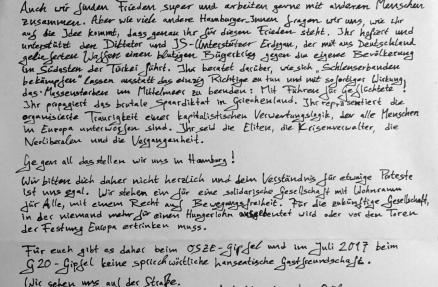 Auch wir finden Frieden super und arbeiten gerne mit anderen Menschen
zusammen. Aber wie viele andere Hamburger_Innen fragen wir uns, wie ihr
auf die Idee kommt, dass genau ihr für diesen Frieden steht. Ihr hofiert und
unterstützt den Diktator und IS-Unterstützer Erdogan, der mit aus Deutschland
gelieferten Waffen einen blutigen Bürgerkrieg gegen die eigene Bevölkerung
im Südosten der Türkei führt. Ihr beratet darüber, wie sich „Schleuserbanden
bekämpfen" lassen anstatt das einzig Richtige zu tun und mit sofortiger Wirkung
das Massensterben im Mittelmeer zu beenden: Mit Fähren für Geflüchtete!
Ihr propagiert das brutale Spardiktat in Griechenland. Ihr repräsentiert die
organisierte Traurigkeit einer kapitalistischen Verwertungslogik, der alle Menschen
in Europa unterworfen sind. Ihr seid die Eliten, die Krisenverwalter, die
Neoliberalen und die Vergangenheit.
Gegen all das stellen wir uns in Hamburg!
Wir bitten dich daher nicht herzlich und dein Verständnis für etwaige Proteste
ist uns egal. Wir stehen ein für eine solidarische Gesellschaft mit Wohnraum
für Alle, mit einem Recht auf Bewegungsfreiheit. Für die zukünftige Gesellschaft,
in der niemand mehr für einen Hungerlohn ausgebeutet wird oder vor den Toren
der Festung Europa ertrinken muss.
Für euch gibt es daher beim OSZE-Gipfel und im Juli 2017 beim
G20-Gipfel keine sprichwörtliche hanseatische Gastfreundschaft.
Wir sehen uns auf der Straße.